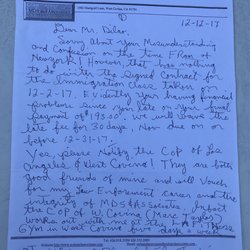 12-12-17
Dear Mr. Delao,
Sorry About your Misunderstanding
and Confusion on the time FRom
Newyork! However, that has nothing
to do with the signed Contract for
the Immigration class taken on
12-2-17. Evidently your having financial
problems since your late on your final
payment of $195.00. We will wave the
late fee for 30 days, Now due on or
before 12-31-17.
Yes, please Notify the Cop of Los
Angeles & West Covina! They are both
Good friends of mine and will Vouch
for my Law Enforcement career and the
integrity of MDS & Associates. Infact
the Cop of W. Covina (Marc Taylor)
works out with me at the
Gym in West Covina five days a week